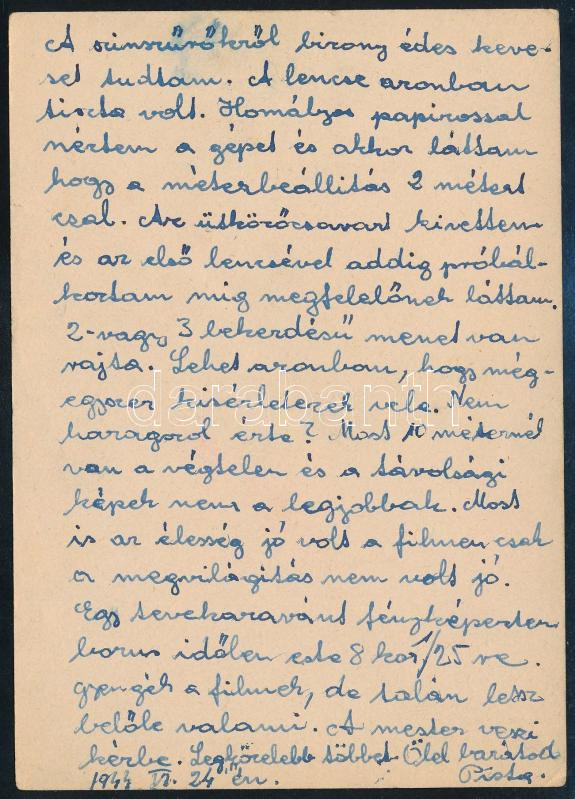 A szinszűrőkről bizony édes keve-
set tudtam. A lencse azonban
tiszta volt. Homályos papirossal
néztem a gépet és akkor láttam
hogy a méterbeállitás 2 métert
csal. Az ütközőcsavart kivettem
és az első lencsével addig próbál-
koztam mig megfelelőnek láttam.
2-vagy 3 bekezdésű menet van
rajta. Lehet azonban, hogy még-
egyszer kisérletezek vele. Nem
haragszol érte? Most 10 méternél
van a végtelen és a távolsági
képek nem a legjobbak. Most
is az élesség jó volt a filmen csak
a megvilágitás nem volt jó.
Egy tevekaravánt fényképeztem
borus időben este 8 kor 1/25 re.
gyengék a filmek, de talán lesz
belőle valami. A mester veszi
kézbe. Legközelebb többet Ölel barátod
1944 VI. 24 én. Pista.
darabanth